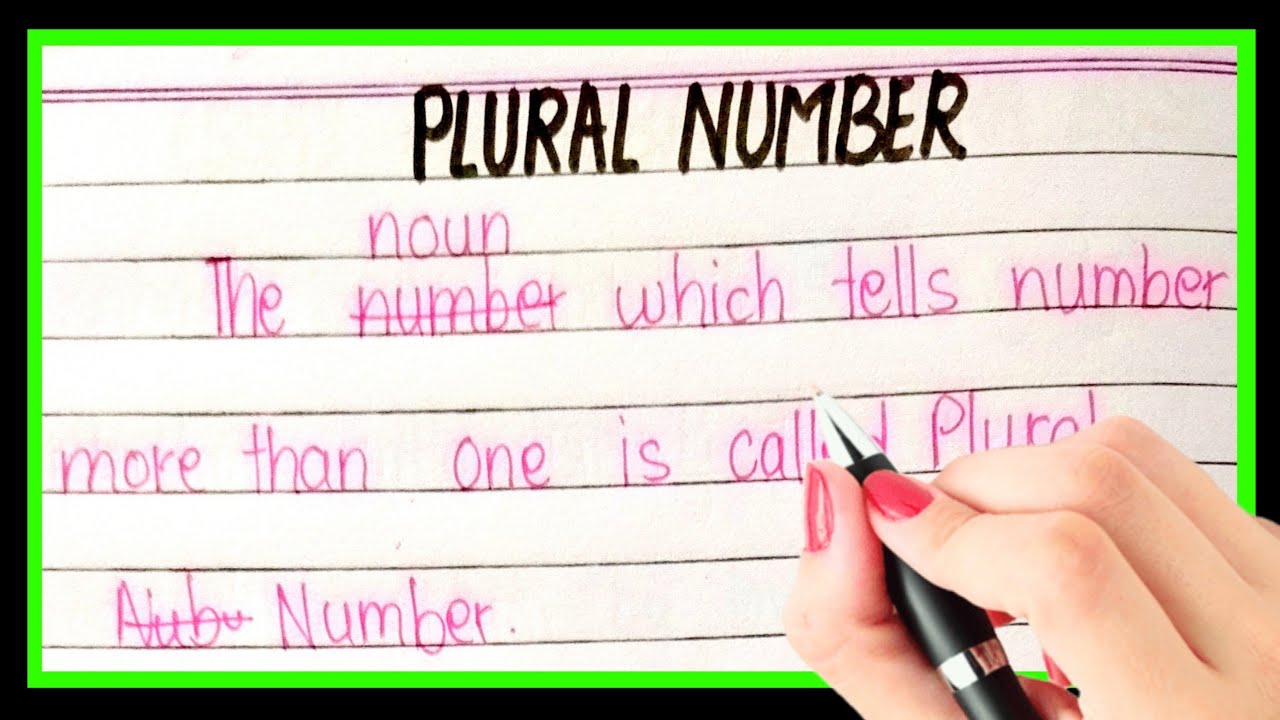 PLURAL NUMBER
noun
The number which tells number
more than one is called Plural
Number.